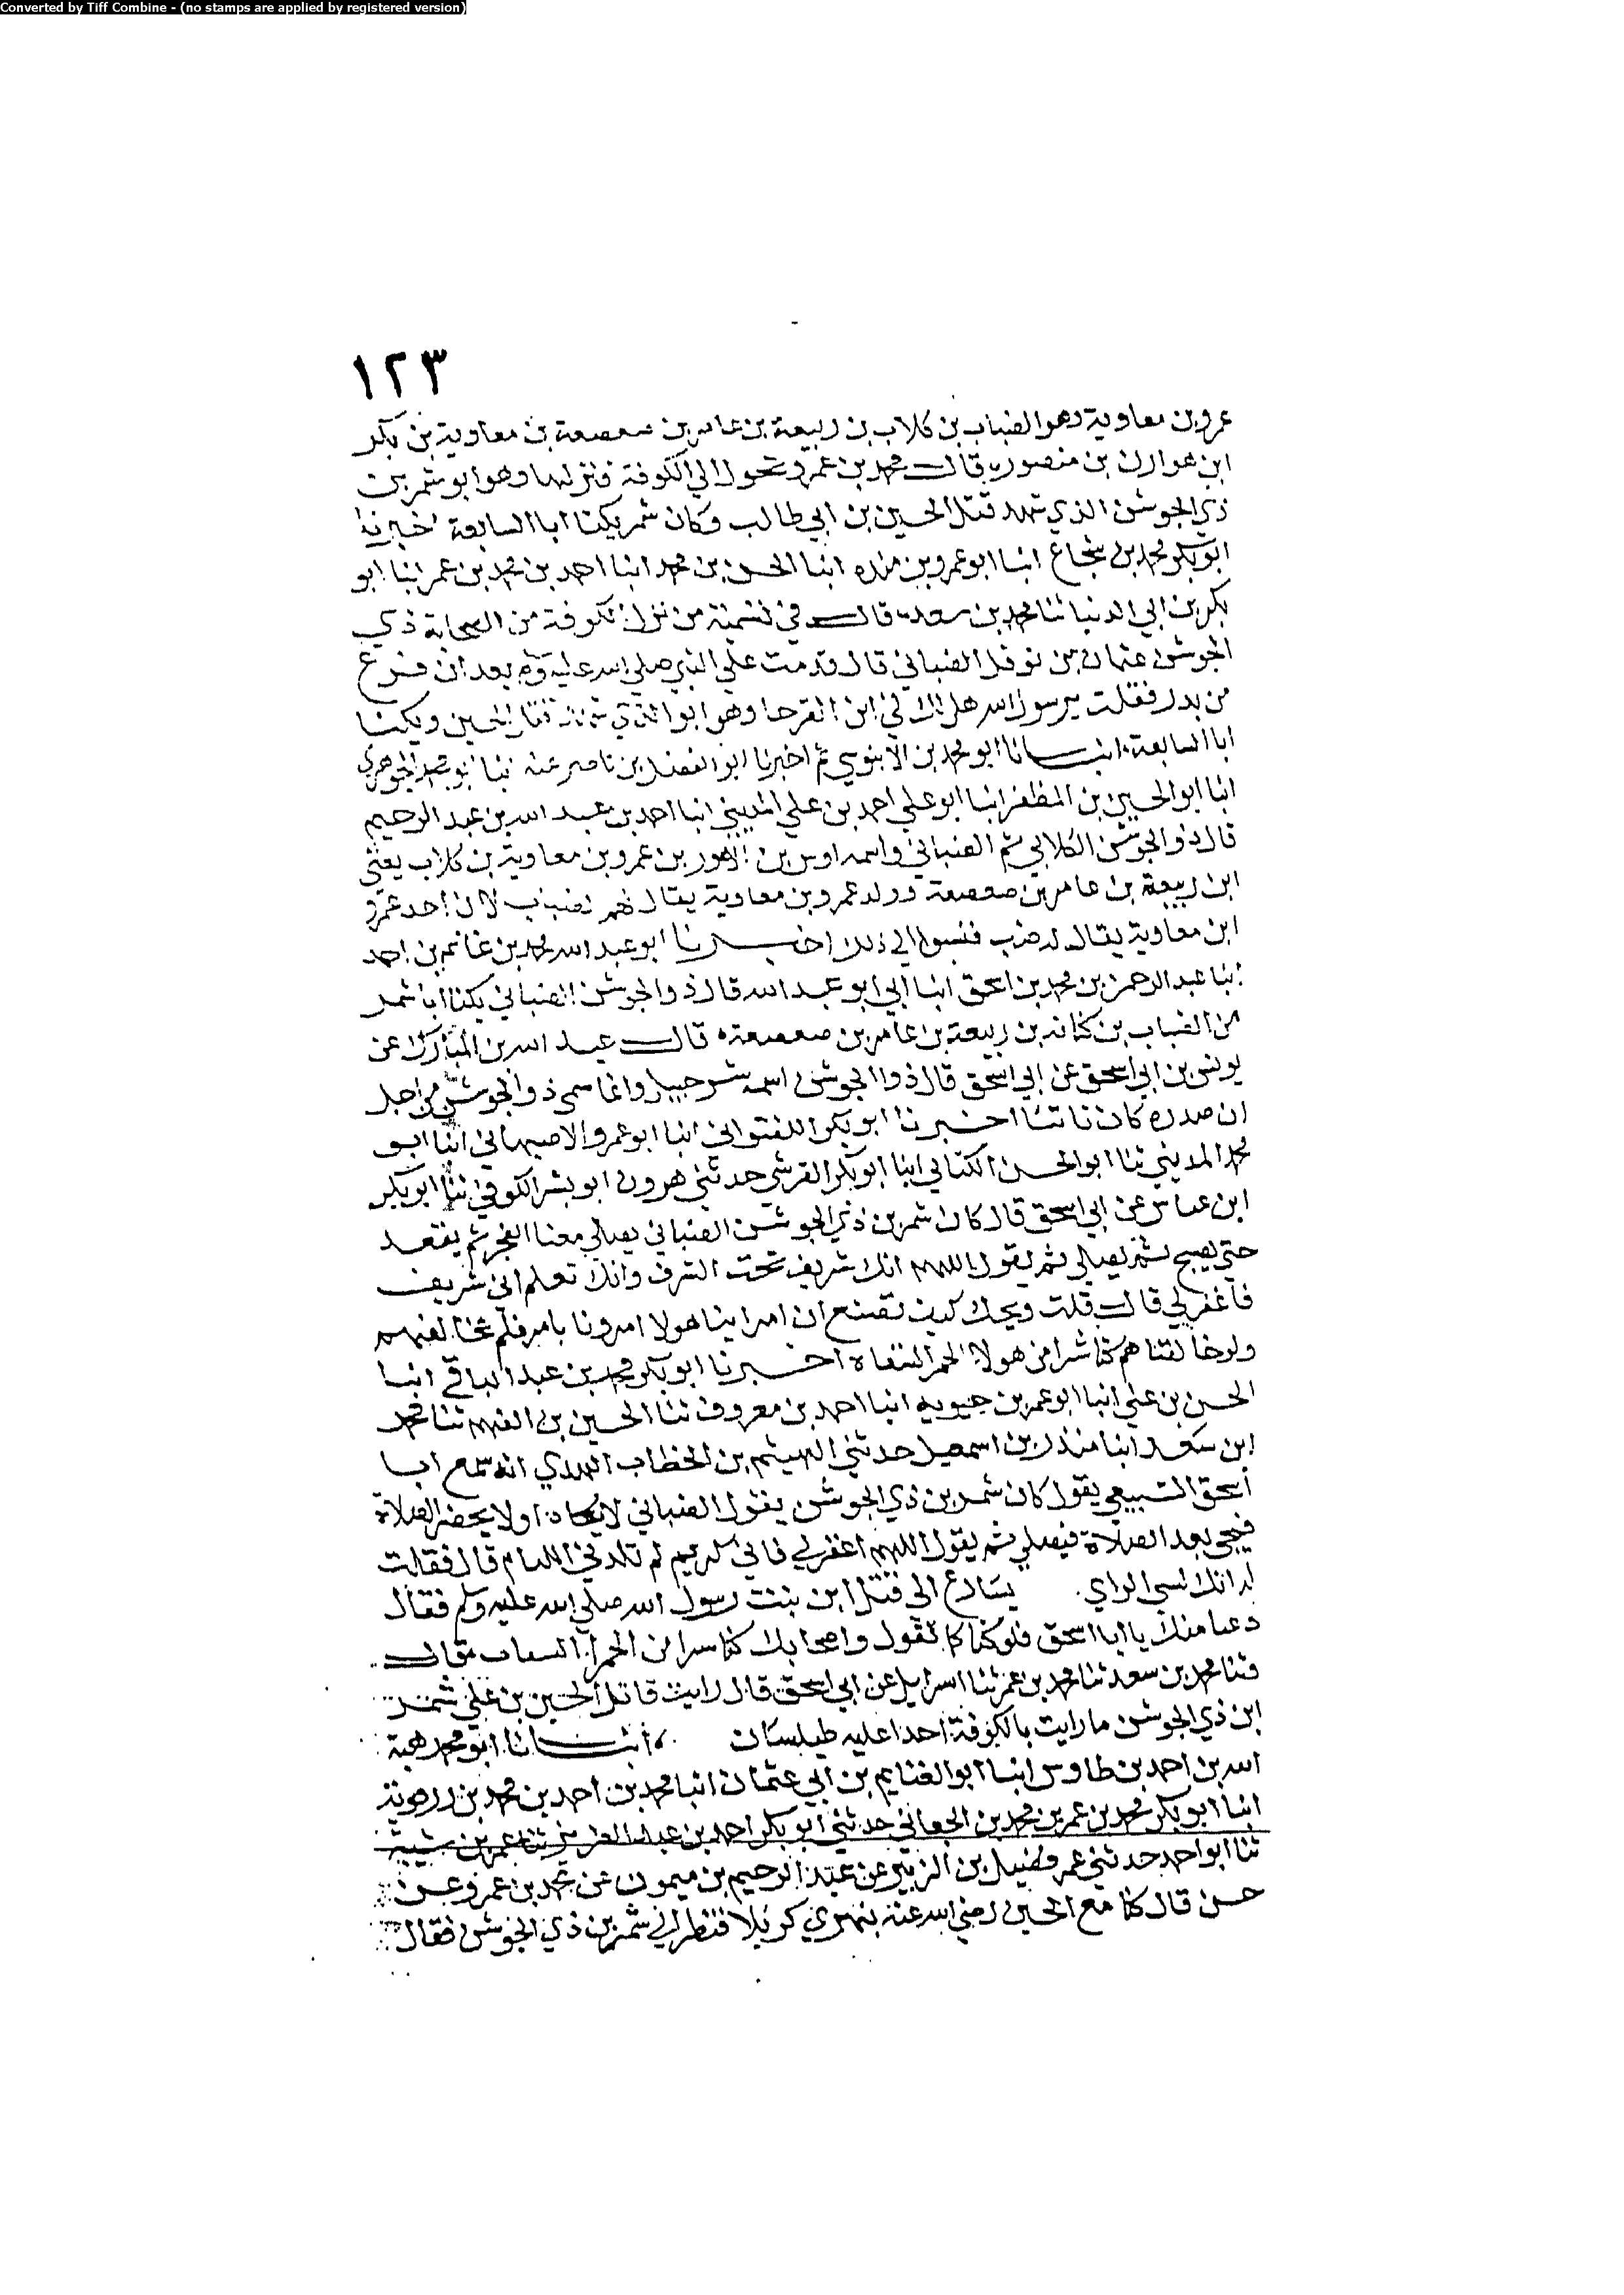 Converted by Tiff Combine - (no stamps are applied by registered version)
١٢٣
عروبن معاوية وهو الضباب بن كلاب بن ربيعة بن عامر بن صعصعة بن معاوية بن بكر
ابن هوازن بن منصور قال محمد بن عمر وتحول الي الكوفة فنزلها وهو ابو شمر بن
ذي الجوشن الذي شهد قتل الحسين بن ابي طالب وكان شمر يكنا ابا السابعة اخبرنا
ابو بكر محمد بن شجاع انبا ابو عمرو بن منده انبا الحسن بن محمد انبا احمد بن محمد بن عمر انبا ابو
بكر بن ابي الدنيا ثنا محمد بن سعد قال في تسمية من نزل الكوفة من الصحابة ذي
الجوشن عثمان بن نوفل الضبابي قال قدمت علي النبي صلي الله عليه وسلم بعد ان فرغ
من بدر فقلت يرسول الله هل لك في ابن القرحا وهو ابو الذي شهد قتل الحسين ويكنا
ابا السابعة انبـانا ابو محمد بن الابنوسي ثم اخبرنا ابو الفضل بن ناصر عنه انبا ابو محمد الجوهري
انبا ابو الحسين بن المظفر انبا ابو علي احمد بن علي المديني انبا احمد بن عبد الله بن عبد الرحيم
قال ذو الجوشن الكلابي ثم الضبابي واسمه اوس بن الاعور بن عمرو بن معاوية بن كلاب يعني
ابن ربيعة بن عامر بن صعصعة وولد عمرو بن معاوية يقال لهم الضباب لان احد عمرو
ابن معاوية يقال له ضب فنسبوا الي ذلك اخبـرنا ابو عبد الله محمد بن غانم بن احمد
انبا عبد الرحمن بن محمد بن اسحق انبا ابي ابو عبد الله قال ذو الجوشن الضبابي يكنا ابا شمر
من الضباب بن كنانه بن ربيعة بن عامر بن صعصعة قال عبد الله بن المبارك عن
يونس بن ابي اسحق عن ابي اسحق قال ذوا الجوشن اسمه شرحبيل وانما سمي ذو الجوشن من اجل
ان صدره كان ناتئا اخبرنا ابو بكر اللفتواني انبا ابو عمرو الاصبهاني انبا ابو
محمد المديني ثنا ابو الحسن الكناني انبا ابو بكر القرشي حدثني هرون ابو بشر الكوفي ثنا ابو بكر
ابن عباس عن ابي اسحق قال كان شمر بن ذي الجوشن الضبابي يصلي معنا الفجر ثم يقعد
حتي يصبح ثم يصلي ثم يقول اللهم انك شريف تحب الشرف وانك تعلم اني شريف
فاغفر لي قال قلت ويحك كيف تصنع ان امراينا هولا امرونا بامر فلم نخالفهم
ولو خالفناهم كنا شرا من هولا الحمر السقاه اخبرنا ابو بكر محمد بن عبد الباقي انبا
الحسن بن علي انبا ابو عمر بن حيويه انبا احمد بن معروف ثنا الحسين بن الفهم ثنا محمد
ابن سعد انبا منذر بن اسمعيل حدثني الهيثم بن الخطاب النهدي انه سمع ابا
اسحق السبيعي يقول كان شمر بن ذي الجوشن يقول الضبابي لا يكاد او لا يحضر الصلاة
فيجي بعد الصلاة فيصلي ثم يقول اللهم اغفر لي فاني كريم لم تلدني اللئام قال فقلت
له انك لسي الراي يسارع الي قتل ابن بنت رسول الله صلي الله عليه وسلم فقال
دعنا منك يا ابا اسحق فلو كنا كما تقول واصحابك كنا شرا من الحمر السقاب قال
فثنا محمد بن سعد ثنا محمد بن عمر ثنا اسرايل عن ابي اسحق قال رايت قاتل الحسين بن علي شمر
ابن ذي الجوشن ما رايت بالكوفة احدا عليه طيلسان انبـانا ابو محمد هبة
الله بن احمد بن طاوس انبا ابو الغنايم بن ابي عثمان انبا محمد بن احمد بن محمد بن
انبا ابو بكر محمد بن عمر بن محمد بن الجعابي حدثني ابو بكر احمد بن عبد العزيز ثنا عمر بن شبة
ثنا ابو احمد حدثني عمر وفضيل بن الزبير عن عبد الرحيم بن ميمون عن محمد بن عمرو عن
حسن قال كنا مع الحسين رضي الله عنه بنهري كربلا فنظر الي شمر بن ذي الجوشن فقال